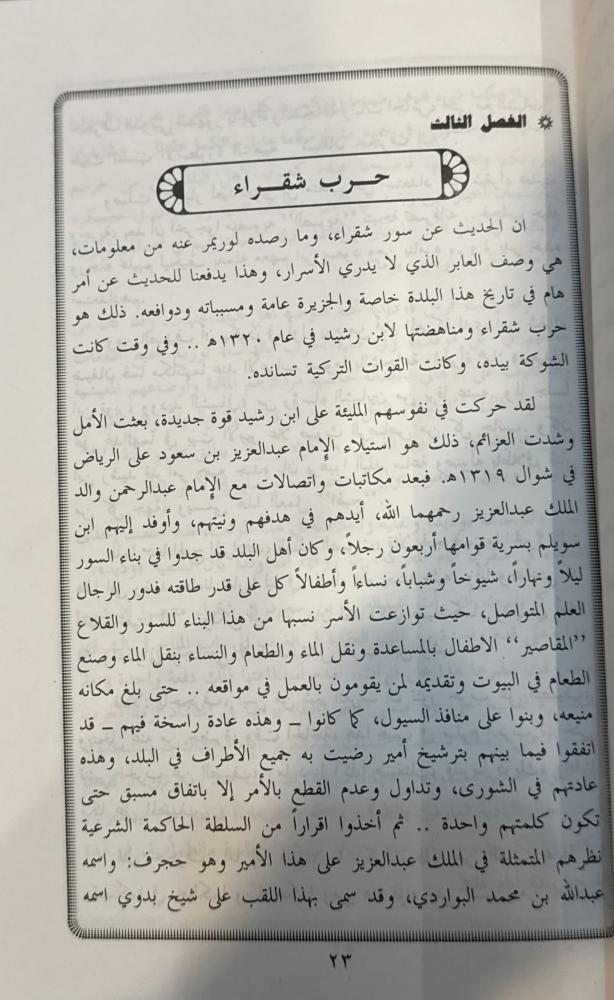 الفصل الثالث
حرب شقراء
ان الحديث عن سور شقراء، وما رصده لوريمر عنه من معلومات،
هي وصف العابر الذي لا يدري الأسرار، وهذا يدفعنا للحديث عن أمر
هام في تاريخ هذا البلدة خاصة والجزيرة عامة ومسبباته ودوافعه. ذلك هو
حرب شقراء ومناهضتها لابن رشيد في عام ١٣٢٠هـ .. وفي وقت كانت
الشوكة بيده، وكانت القوات التركية تسانده.
لقد حركت في نفوسهم المليئة على ابن رشيد قوة جديدة، بعثت الأمل
وشدت العزائم، ذلك هو استيلاء الإمام عبدالعزيز بن سعود على الرياض
في شوال ١٣١٩هـ. فبعد مكاتبات واتصالات مع الإمام عبدالرحمن والد
الملك عبدالعزيز رحمهما الله، أيدهم في هدفهم ونيتهم، وأوفد إليهم ابن
سويلم بسرية قوامها أربعون رجلاً، وكان أهل البلد قد جدوا في بناء السور
ليلاً ونهاراً، شيوخاً وشباباً، نساءاً وأطفالاً كل على قدر طاقته فدور الرجال
العلم المتواصل، حيث توازعت الأسر نسبها من هذا البناء للسور والقلاع
”المقاصير“ الاطفال بالمساعدة ونقل الماء والطعام والنساء بنقل الماء وصنع
الطعام في البيوت وتقديمه لمن يقومون بالعمل في مواقعه .. حتى بلغ مكانه
منيعه، وبنوا على منافذ السيول، كما كانوا ــ وهذه عادة راسخة فيهم ــ قد
اتفقوا فيما بينهم بترشيخ أمير رضيت به جميع الأطراف في البلد، وهذه
عادتهم في الشورى، وتداول وعدم القطع بالأمر إلا باتفاق مسبق حتى
تكون كلمتهم واحدة .. ثم أخذوا اقراراً من السلطة الحاكمة الشرعية
نظرهم المتمثلة في الملك عبدالعزيز على هذا الأمير وهو حجرف: واسمه
عبدالله بن محمد البواردي، وقد سمى بهذا اللقب على شيخ بدوي اسمه
٢٣